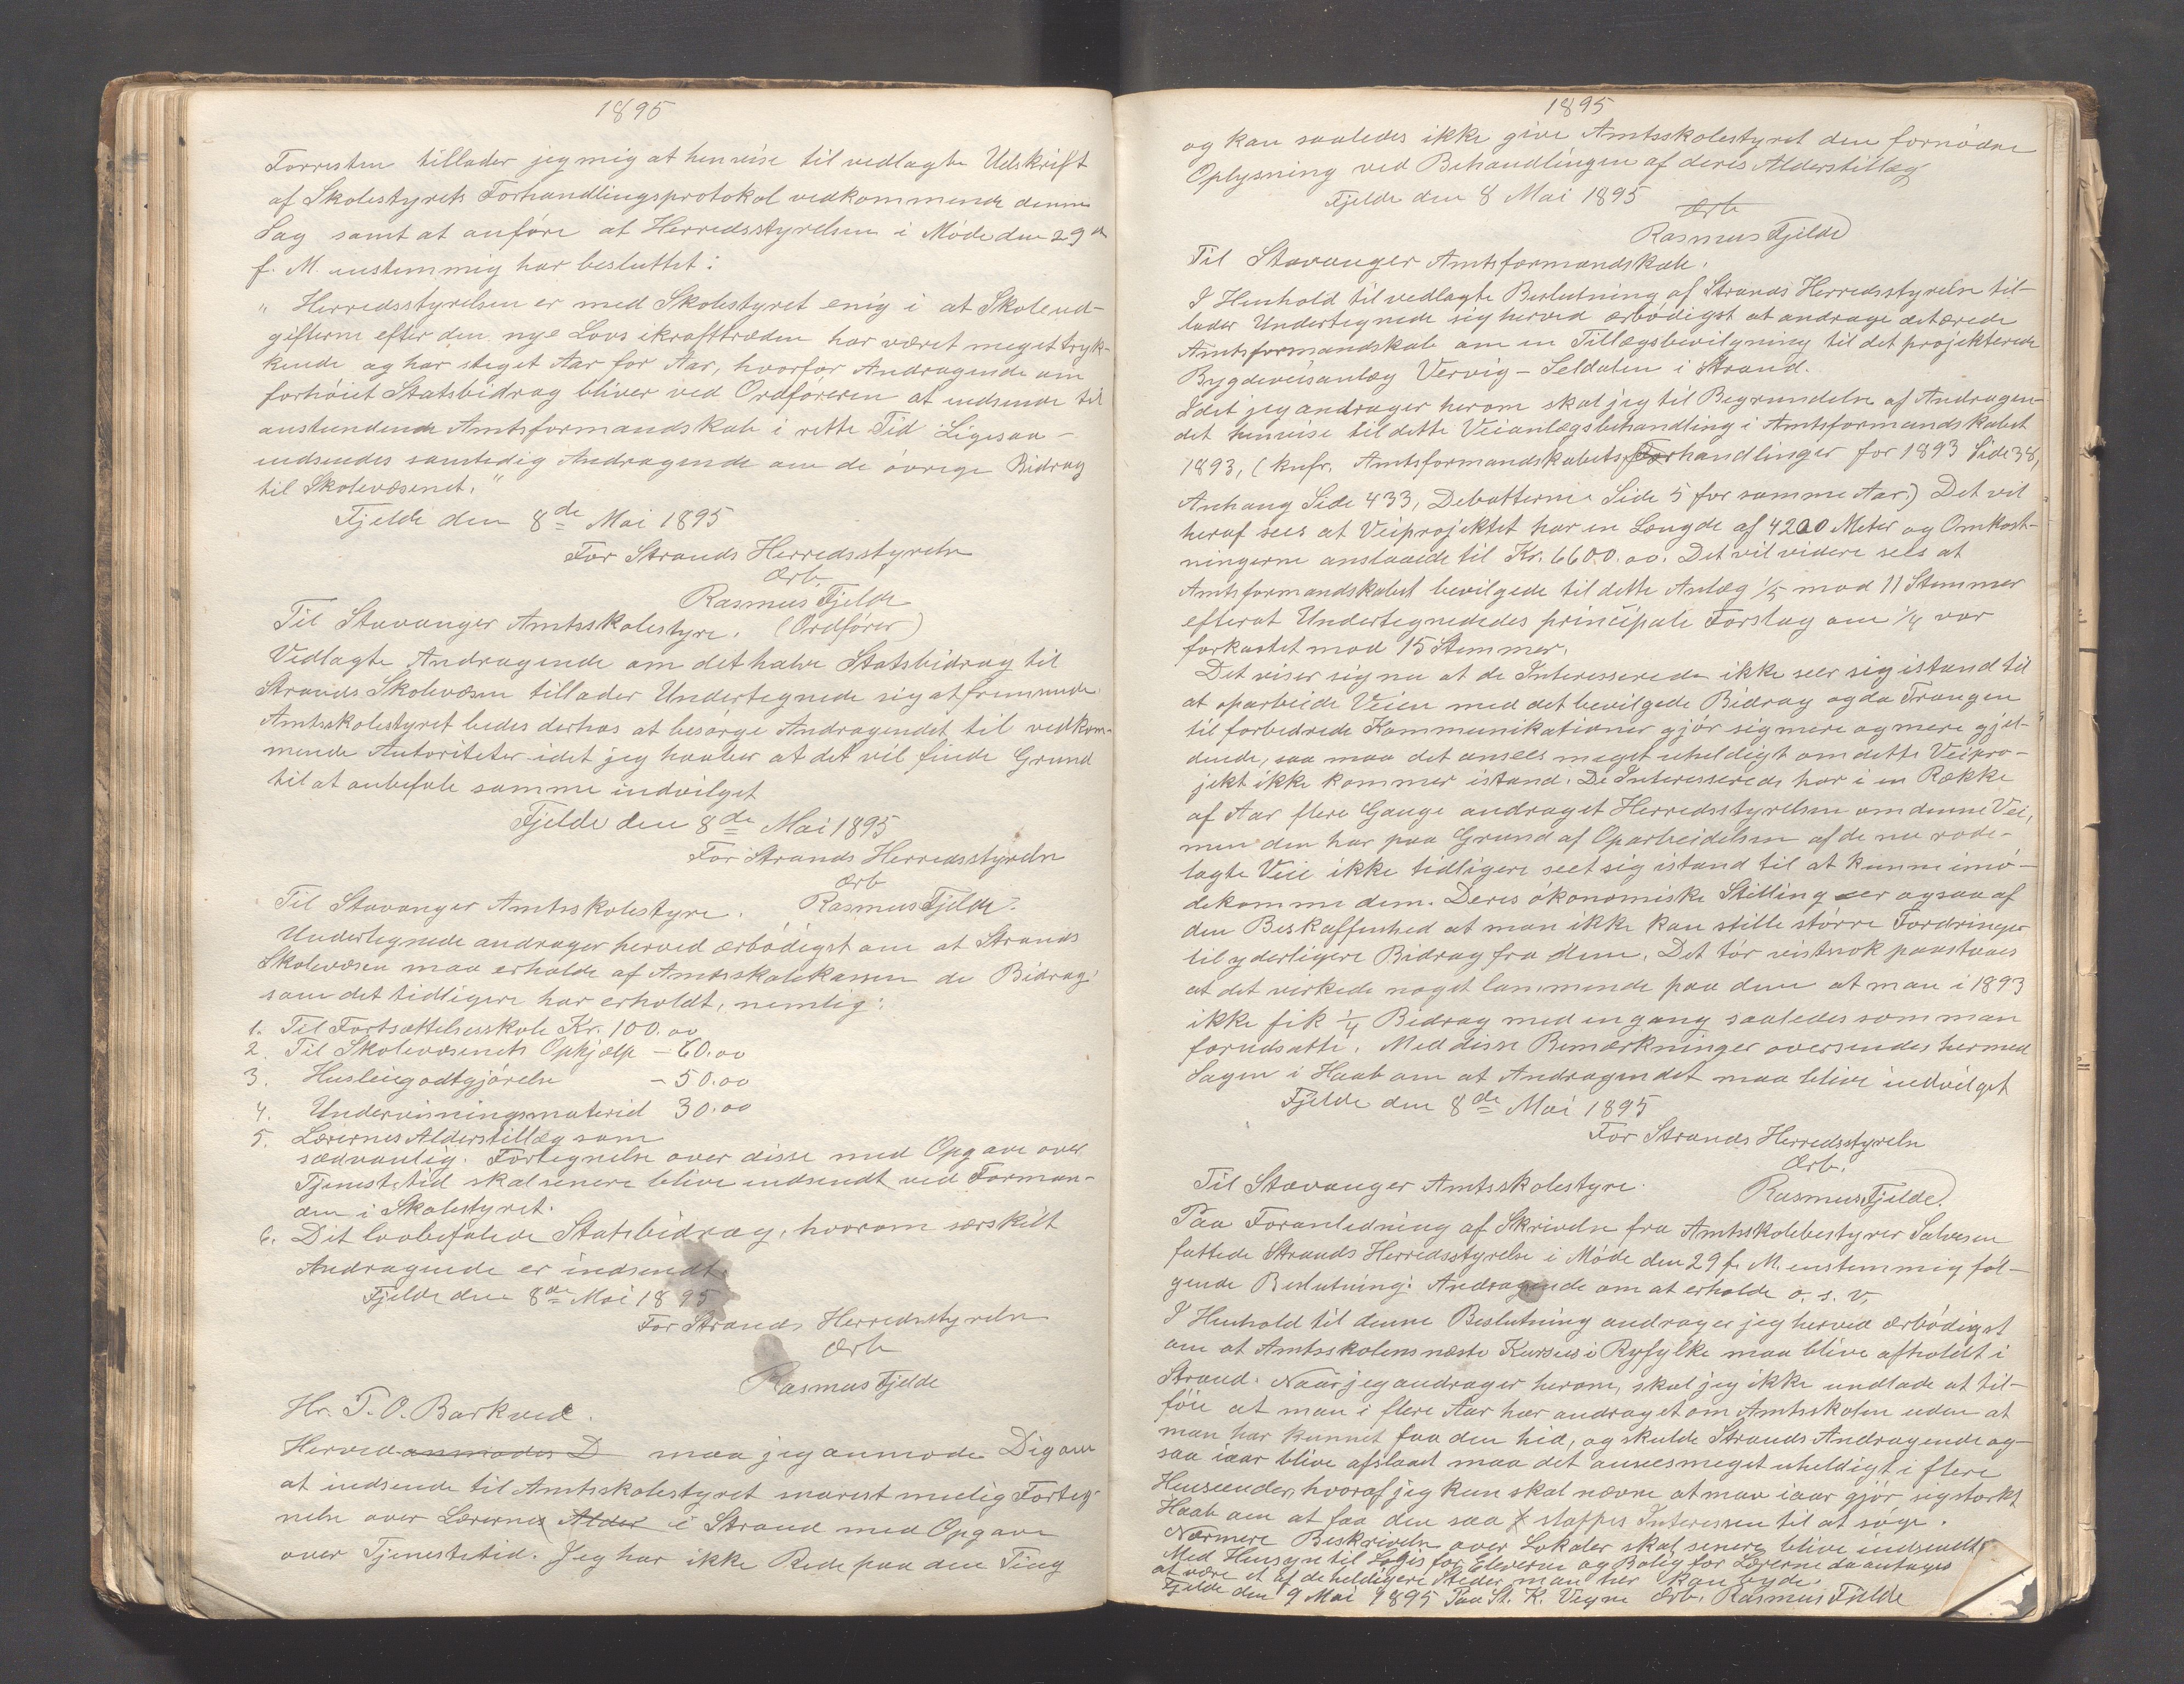 1895
Forresten tillader jeg mig at henvise til vedlagte Udskrift
af Skolestyrets Forhandlingsprotokol vedkommende denne
Sag samt at anføre at Herredsstyrelsen i Møde den 29de
f. M. enstemmig har besluttet:
" Herredsstyrelsen er med Skolestyret enig i at Skoleud-
gifterne efter den nye Lovs ikrafttræden har været meget tryk-
kende og har steget Aar for Aar, hvorfor Andragende om
forhøiet Statsbidrag bliver ved Ordføreren at indsende til
anstundende Amtsformandskab i rette Tid Ligesaa-
indsendes samtidig Andragende om de øvrige Bidrag
til Skolevæsenet."
Fjelde den 8de Mai 1895
For Strands Herredsstyrelse
Ærb.
Rasmus Fjelde
(Ordfører)
Til Stavanger Amtsskolestyre.
Vedlagte Andragende om det halve Statsbidrag til
Strands Skolevæsen tillader Undertegnede sig at fremsende.
Amtsskolestyret bedes derhos at besørge Andragendet til vedkom-
mende Autoriteter idet jeg haaber at det vil finde Grund
til at anbefale samme indvilget
Fjelde den 8de Mai 1895
For Strands Herredsstyrelse
Ærb
Rasmus Fjelde.
Til Stavanger Amtsskolestyre.
Undertegnede andrager herved ærbødigst om at Strands
Skolevæsen maa erholde af Amtsskolekassen de Bidrag
som det tidligere har erholdt, nemlig:
1. Til Fortsættelsesskole Kr. 100.00
2. Til Skolevæsenets Ophjælp - 60.00
3. Husleiegodtgjørelse - 50.00
4. Undervisningsmateriel 30.00
5. Lærernes Alderstillæg som
sædvanlig. Fortegnelse over disse med Opgave over
Tjenestetid skal senere blive indsendt ved Forman-
den i Skolestyret.
6. Det lovbefalede Statsbidrag, hvorom særskilt
Andragende er indsendt.
Fjelde den 8de Mai 1895
For Strands Herredsstyrelse
Ærb
Rasmus Fjelde
Hr. T. O. Barkved.
Herved anmodes D maa jeg anmode Dig om
at indsende til Amtsskolestyret snarest mulig Forteg-
nelse over Lærernes Alder i Strand med Opgave
over Tjenestetid. Jeg har ikke Rede paa den Ting
1895
og kan saaledes ikke give Amtsskolestyret den fornødne
Oplysning ved Behandlingen af deres Alderstillæg
Fjelde den 8 Mai 1895
Ærb
Rasmus Fjelde
Til Stavanger Amtsformandskab.
I Henhold til vedlagte Beslutning af Strands Herredsstyrelse til-
lader Undertegnede sig herved ærbødigst at andrage det ærede
Amtsformandskab om en Tillægsbevilgning til det projekterede
Bygdeveisanlæg Vervig - Seldalen i Strand.
Idet jeg andrager herom skal jeg til Begrundelse af Andragen-
det henvise til dette Veianlægs behandling i Amtsformandskabet
1893, (knfr. Amtsformandskabets Forhandlinger for 1893 Side 38,
Anhang Side 433, Debatterne Side 5 for samme Aar.) Det vil
heraf sees at Veiprojektet har en Længde af 4200 Meter og Omkost-
ningerne anslaaede til Kr. 6600.00. Det vil videre sees at
Amtsformandskabet bevilgede til dette Anlæg 1/5 mod 11 Stemmer
efterat Undertegnededes principale Forslag om 1/4 var
forkastet mod 15 Stemmer.
Det viser sig nu at de Interesserede ikke seer sig istand til
at oparbeide Veien med det bevilgede Bidrag og da Trangen
til forbedrede Kommunikationer gjør sig mere og mere gjæl-
dende, saa maa det ansees meget uheldigt om dette Veipro-
jekt ikke kommer istand. De Interesserede har i en Række
af Aar flere Gange andraget Herredsstyrelsen om denne Vei,
men den har paa Grund af Oparbeidelsen af de nu rode-
lagte Veie ikke tidligere seet sig istand til at kunne imø-
dekomme dem. Deres økonomiske Stilling er ogsaa af
den Beskaffenhed at man ikke kan stille større Fordringer
til yderligere Bidrag fra dem. Det tør vistnok paastaaes
at det virkede noget lammende paa dem at man i 1893
ikke fik 1/4 Bidrag med en gang saaledes som man
forudsatte. Med disse Bemærkninger oversendes hermed
Sagen i Haab om at Andragendet maa blive indvilget
Fjelde den 8de Mai 1895
For Strands Herredsstyrelse
Ærb.
Rasmus Fjelde.
Til Stavanger Amtsskolestyre.
Paa Foranledning af Skrivelse fra Amtsskolebestyrer Salvesen
fattede Strands Herredsstyrelse i Møde den 29 f. M. enstemmig føl-
gende Beslutning: Andragende om at erholde o. s. v.
I Henhold til denne Beslutning andrager jeg herved ærbødigst
om at Amtsskolens næste Kursus i Ryfylke maa blive afholdt i
Strand. Naar jeg andrager herom, skal jeg ikke undlade at til-
føie at man i flere Aar har andraget om Amtsskolen uden at
man har kunnet faa den hid, og skulde Strands Andragende og-
saa iaar blive afslaaet maa det ansees meget uheldigt i flere
Henseender, hvoraf jeg kun skal nævne at man iaar gjør sig stærkt
Haab om at faa den saa slappes Interessen til at søge.
Nærmere Beskrivelse over Lokaler skal senere blive indsendt.
Med Hensyn til Logis for Eleverne og Bolig for Lærerne da antages
at være et af de heldigere Steder man her kan byde.
Fjelde den 9 Mai 1895 Paa St. K. Vegne Ærb. Rasmus Fjelde